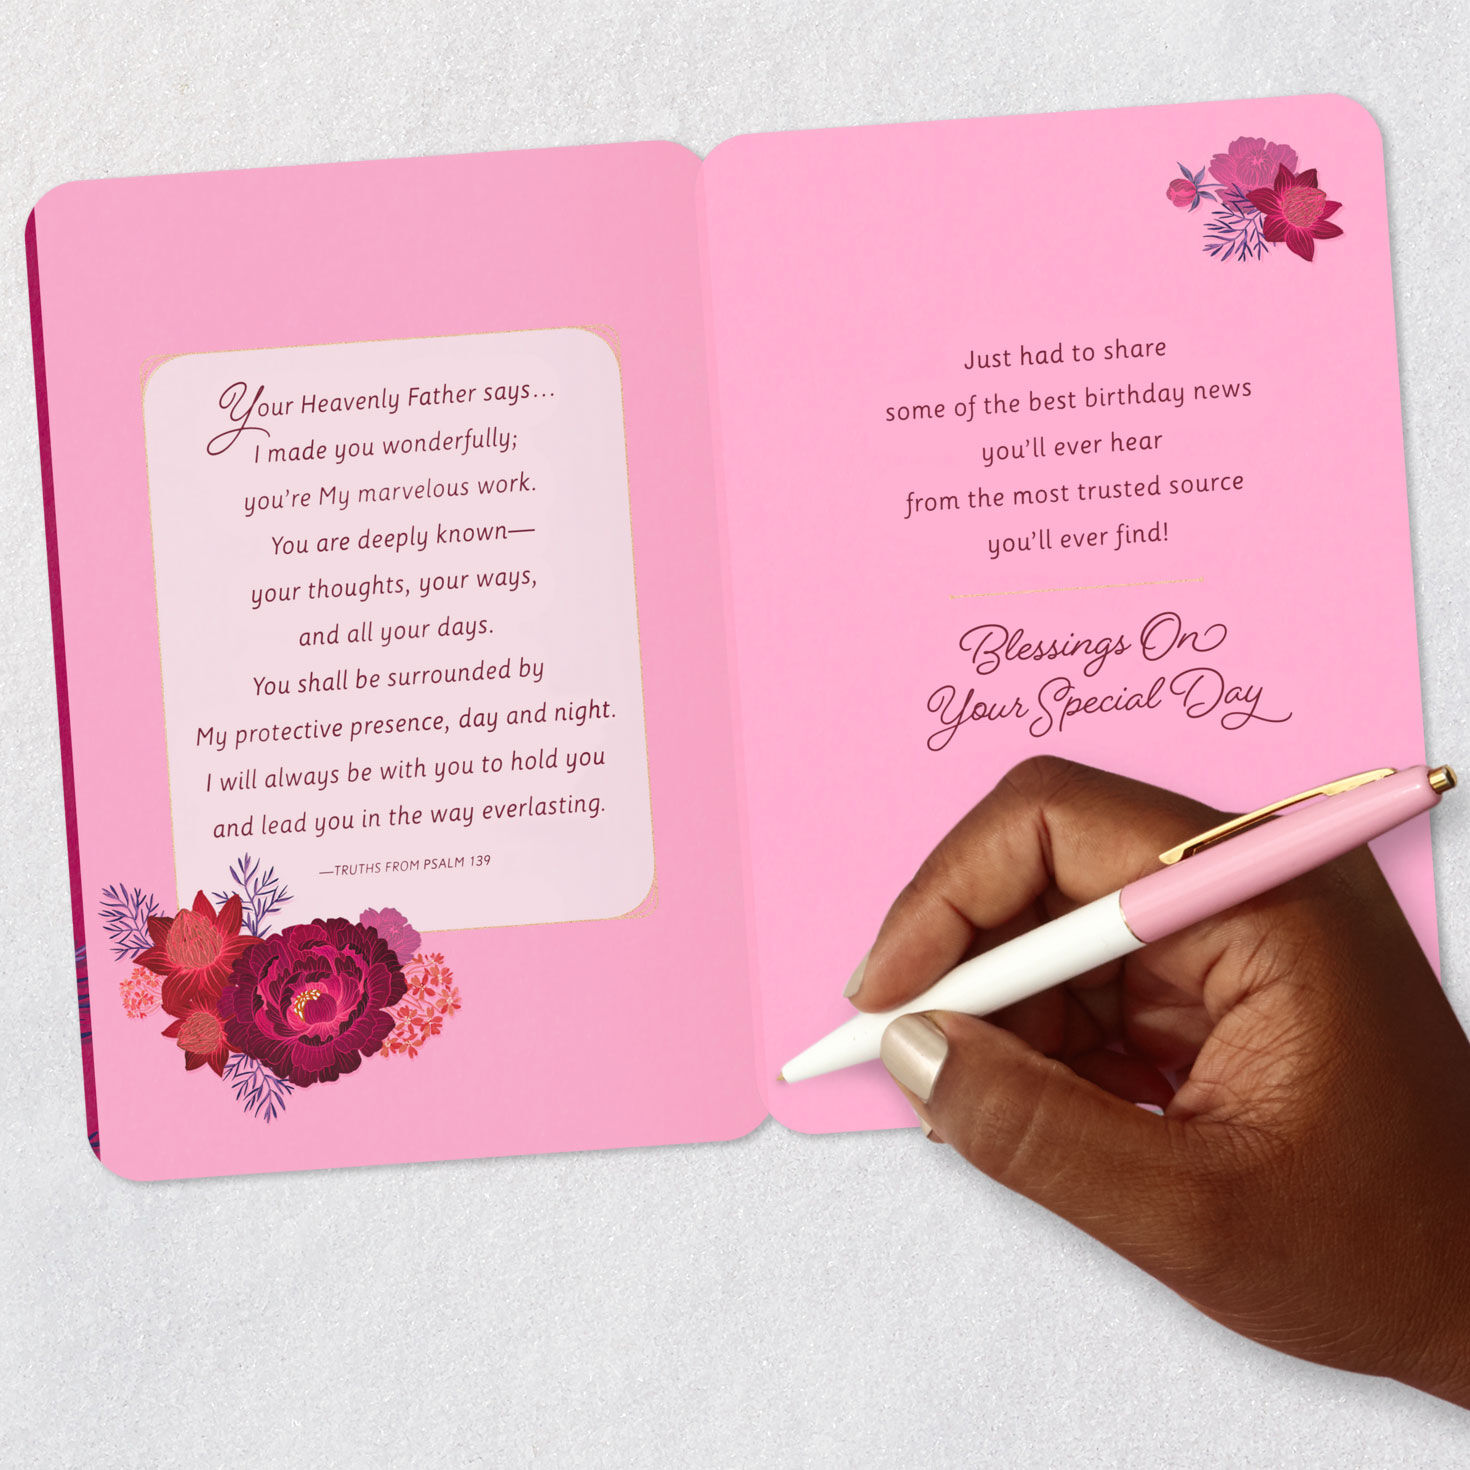 Your Heavenly Father says...
I made you wonderfully;
you're My marvelous work.
You are deeply known—
your thoughts, your ways,
and all your days.
You shall be surrounded by
My protective presence, day and night.
I will always be with you to hold you
and lead you in the way everlasting.
—TRUTHS FROM PSALM 139
Just had to share
some of the best birthday news
you'll ever hear
from the most trusted source
you'll ever find!
Blessings On
Your Special Day